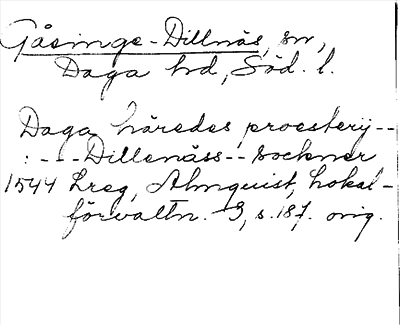 Gåsinge-Dillnäs, sn,
Daga hd, Söd. l.
Daga häredes proesterij--
: --- Dillenäss -- sockner
1544 Lreg, Almquist, Lokal-
förvaltn. 3, s.187. orig.